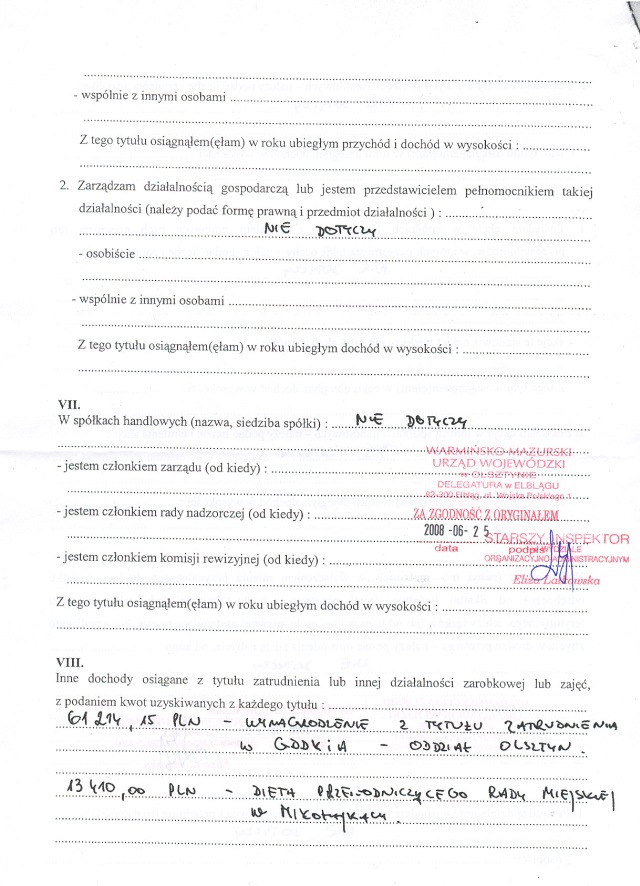 - wspólnie z innymi osobami
Z tego tytułu osiągnąłem(ęłam) w roku ubiegłym przychód i dochód w wysokości :
2. Zarządzam działalnością gospodarczą lub jestem przedstawicielem pełnomocnikiem takiej
działalności (należy podać formę prawną i przedmiot działalności ) :
NIE DOTYCZY
- osobiście
- wspólnie z innymi osobami
Z tego tytułu osiągnąłem(ęłam) w roku ubiegłym dochód w wysokości :
VII.
W spółkach handlowych (nazwa, siedziba spółki) : NIE DOTYCZY
WARMIŃSKO-MAZURSKI
URZĄD WOJEWÓDZKI
w OLSZTYNIE
- jestem członkiem zarządu (od kiedy) :
DELEGATURA w ELBLĄGU
82-300 Elbląg, ul. Wojska Polskiego 1
- jestem członkiem rady nadzorczej (od kiedy) :
ZA ZGODNOŚĆ Z ORYGINAŁEM
2008 -06- 25
STARSZY INSPEKTOR
data podpis
W WYDZIALE
ORGANIZACYJNO-ADMINISTRACYJNYM
- jestem członkiem komisji rewizyjnej (od kiedy) :
Eliza Laskowska
Z tego tytułu osiągnąłem(ęłam) w roku ubiegłym dochód w wysokości :
VIII.
Inne dochody osiągane z tytułu zatrudnienia lub innej działalności zarobkowej lub zajęć,
z podaniem kwot uzyskiwanych z każdego tytułu :
61 214,15 PLN - WYNAGRODZENIE Z TYTUŁU ZATRUDNIENIA
W GDDKIA - ODDZIAŁ OLSZTYN.
13 410,00 PLN - DIETA PRZEWODNICZĄCEGO RADY MIEJSKIEJ
W MIKOŁAJKACH.